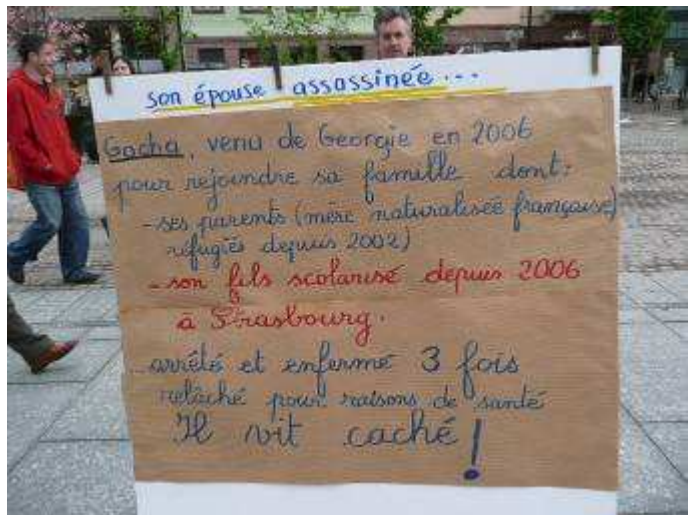 son épouse assassinée...
Gocha, venu de Georgie en 2006
pour rejoindre sa famille dont:
- ses parents (mère naturalisée française)
réfugiés depuis 2002)
- son fils scolarisé depuis 2006
à Strasbourg.
arrêté et enfermé 3 fois
relâché pour raisons de santé
Il vit caché !